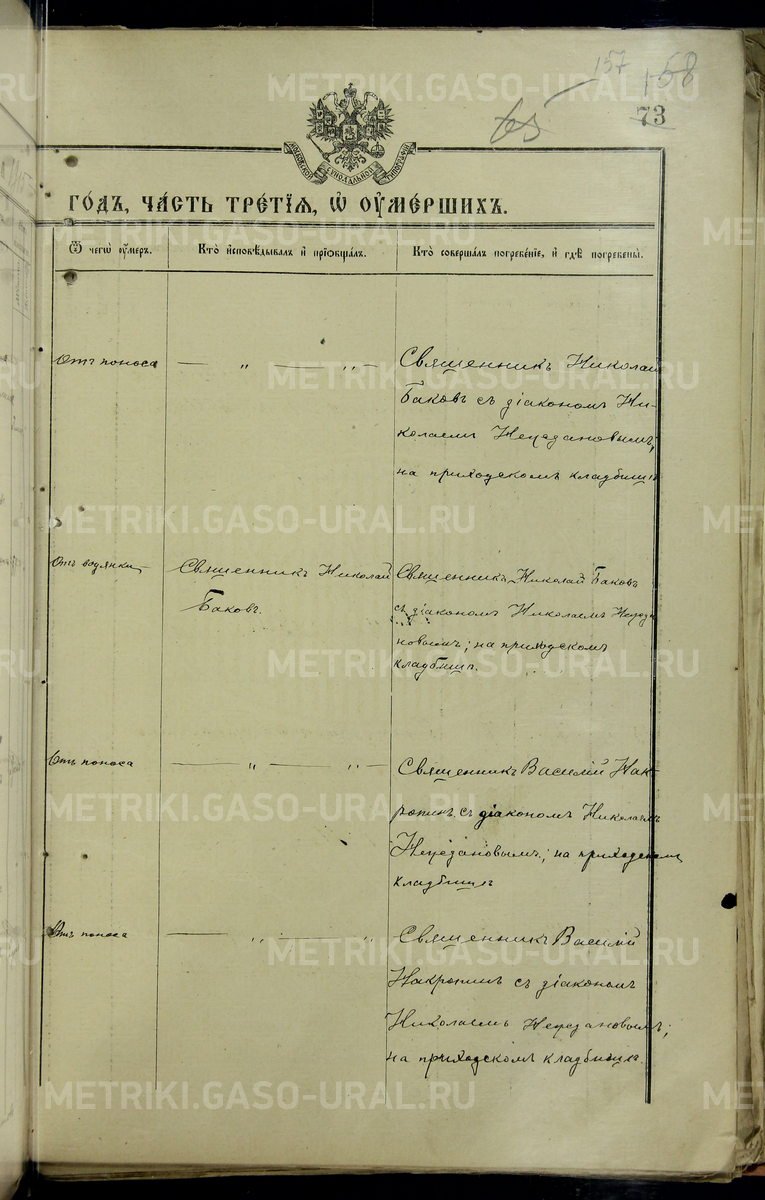 157
158
65
73
МОСКОВСКОЙ СѴНОДАЛЬНОЙ ТИПОГРАФІИ
ГО́ДЪ, ЧА́СТЬ ТРЕ́ТІѦ, Ѽ ОУ҆МЕ́РШИХЪ.
Ѿ чегѡ̀ оу҆́меръ.
Кто̀ и҆сповѣ́дывалъ и҆ прїѡбща́лъ.
Кто̀ соверша́лъ погребе́нїе, и҆ гдѣ̀ погребены̀.
Отъ поноса
— „ — „ —
Священникъ Николай
Баковъ съ діакономъ Ни-
колаемъ
на приходскомъ кладбищѣ
Отъ водянки
Священникъ Николай
Баковъ.
Священникъ Николай Баковъ
съ діакономъ Николаемъ
новымъ; на приходскомъ
кладбищѣ.
Отъ поноса
— „ — „ —
Священникъ Василій Нак-
ропинъ съ діакономъ Николаемъ
на приходскомъ
кладбищѣ
Отъ поноса
— „ — „
Священникъ Василій
Накропинъ съ діакономъ
Николаемъ
на приходскомъ кладбищѣ.
METRIKI.GASO-URAL.RU